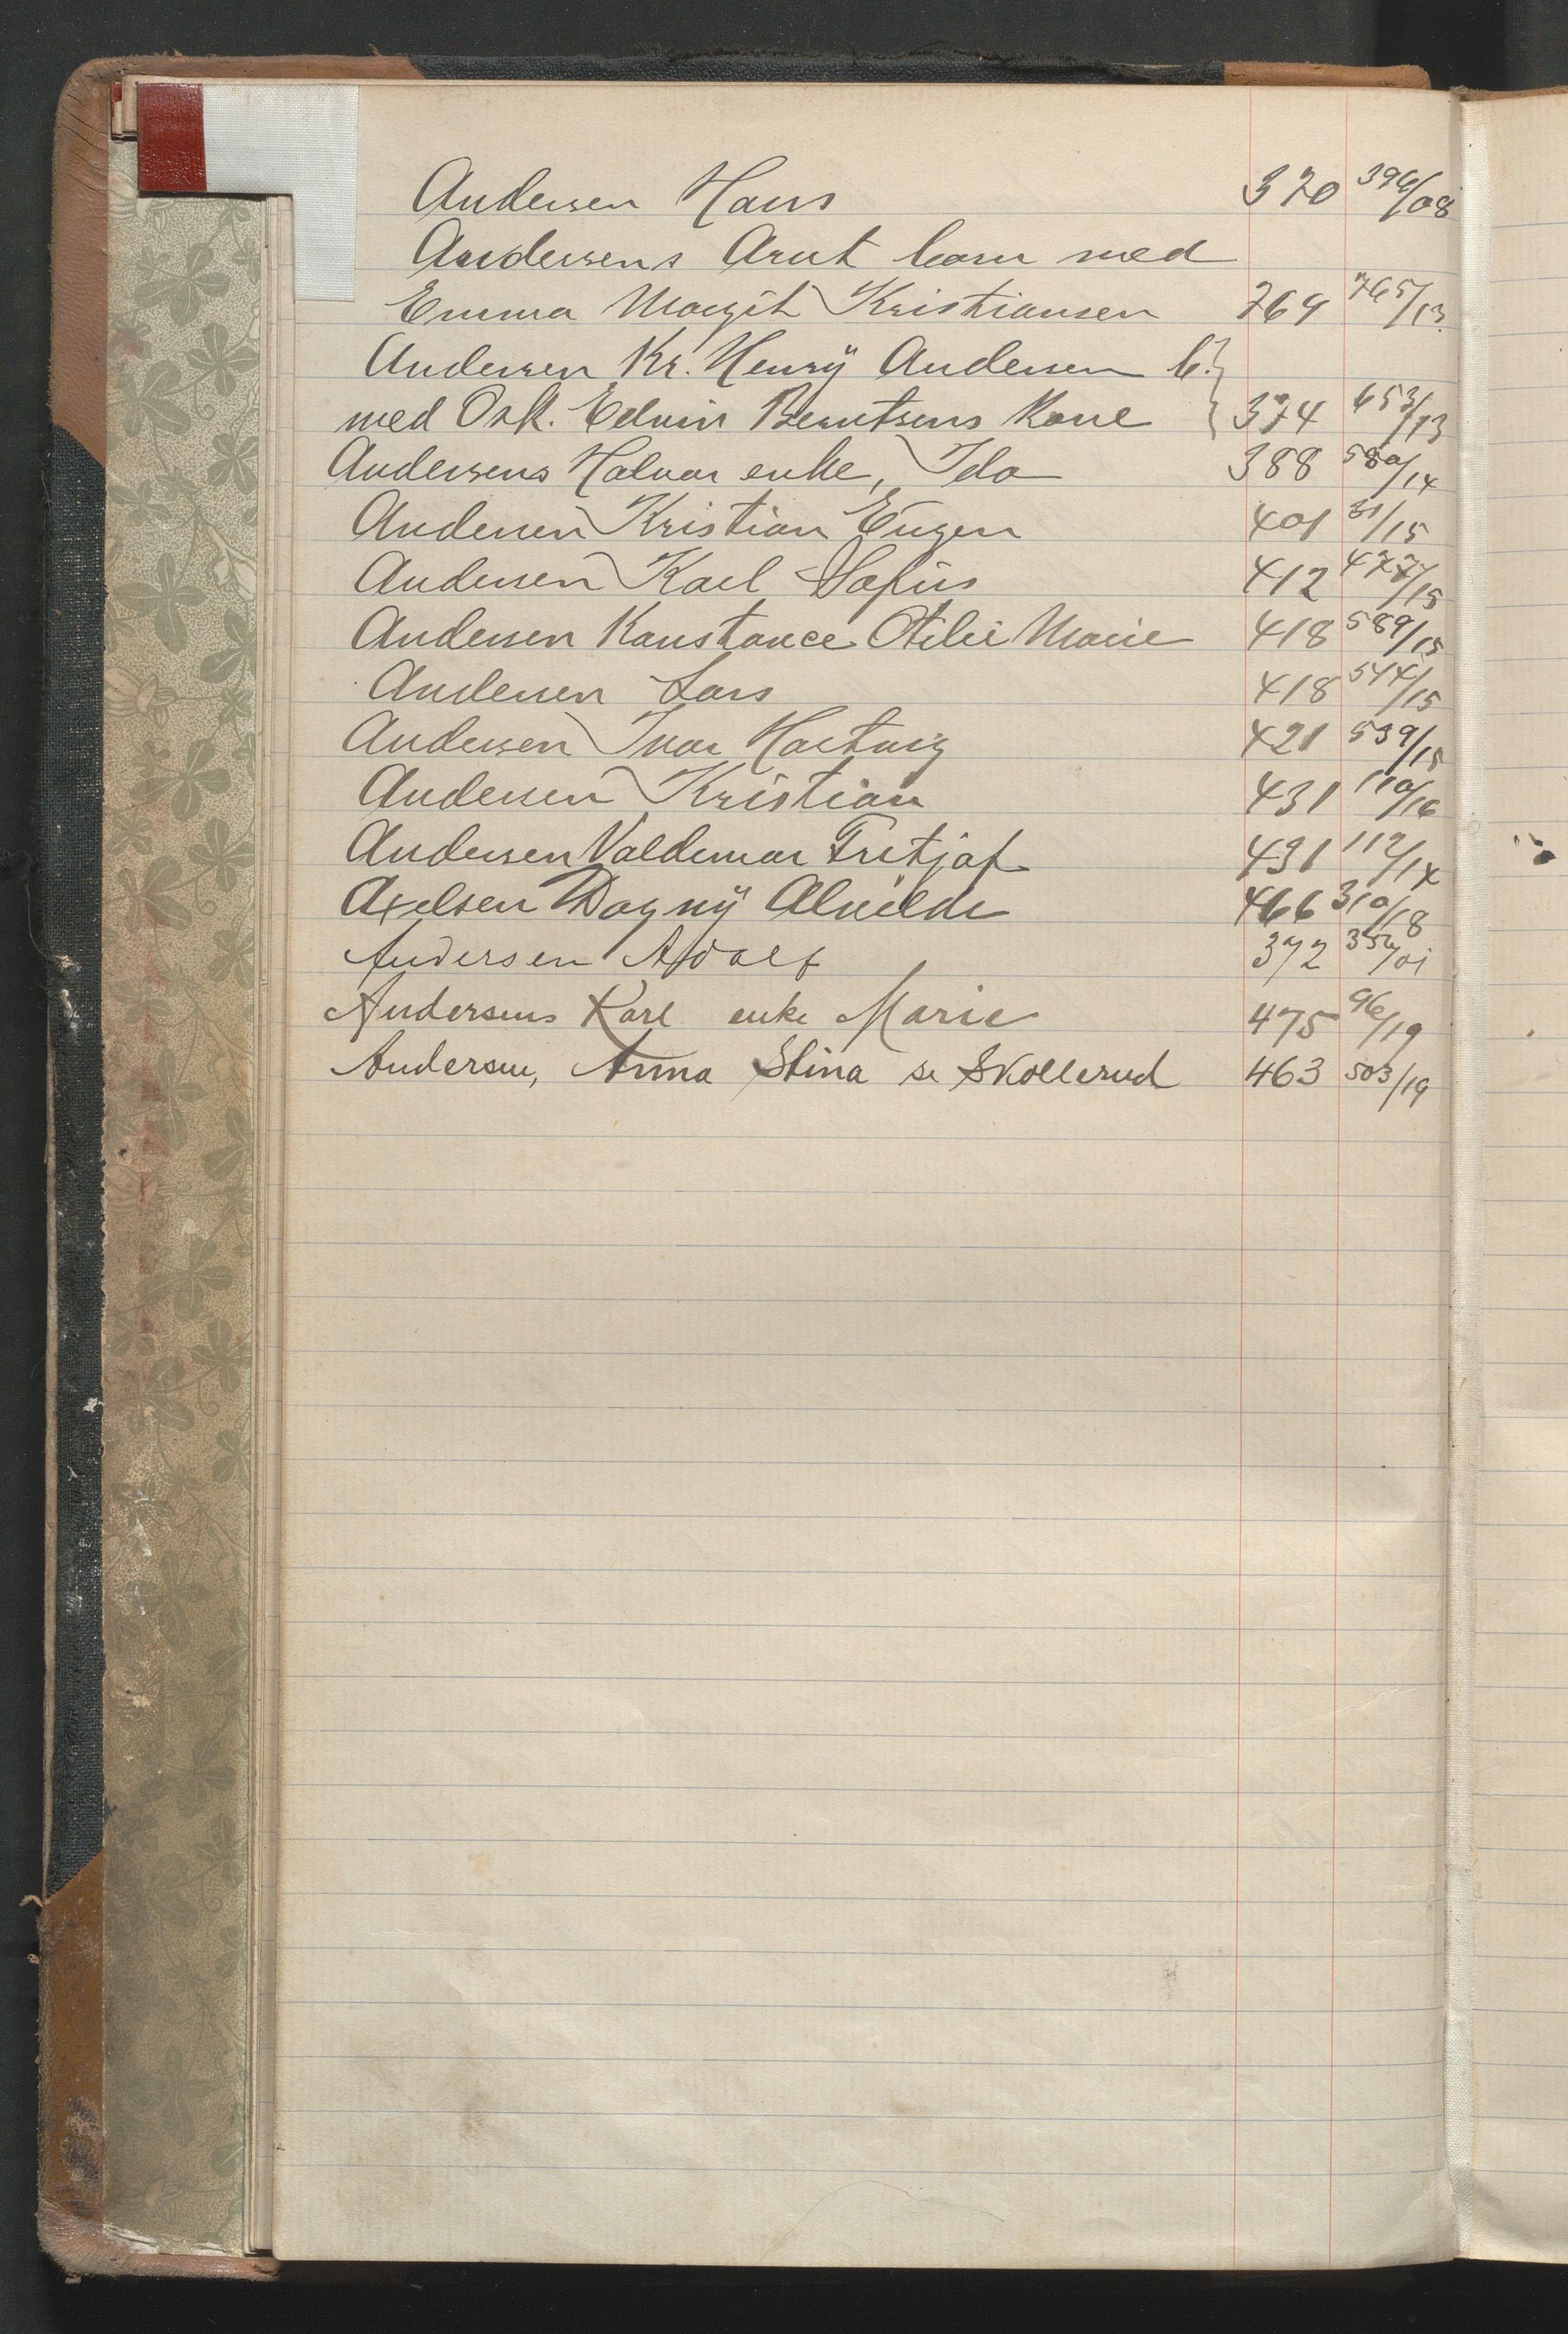 Andersen Hans 370 396/08
Andersens Arnt barn med
Emma Margit Kristiansen 769 765/13
Andersen Kr. Henry Andersen b.
med Osk. Edvin Berntsens Kone 374 653/13
Andersens Halvar enke, Ida 388 580/14
Andersen Kristian Eugen 401 31/15
Andersen Karl Sofus 412 477/15
Andersen Konstance Otilie Marie 418 589/15
Andersen Lars 418 544/15
Andersen Ivar Hartvig 421 539/15
Andersen Kristian 431 110/16
Andersen Valdemar Fritjof 431 112/14
Axelsen Dagny Alvilde 466 310/18
Andersen Adolf 372 352/01
Andersens Karl enke Marie 475 96/19
Andersen, Anna Stina se Skollerud 463 503/19